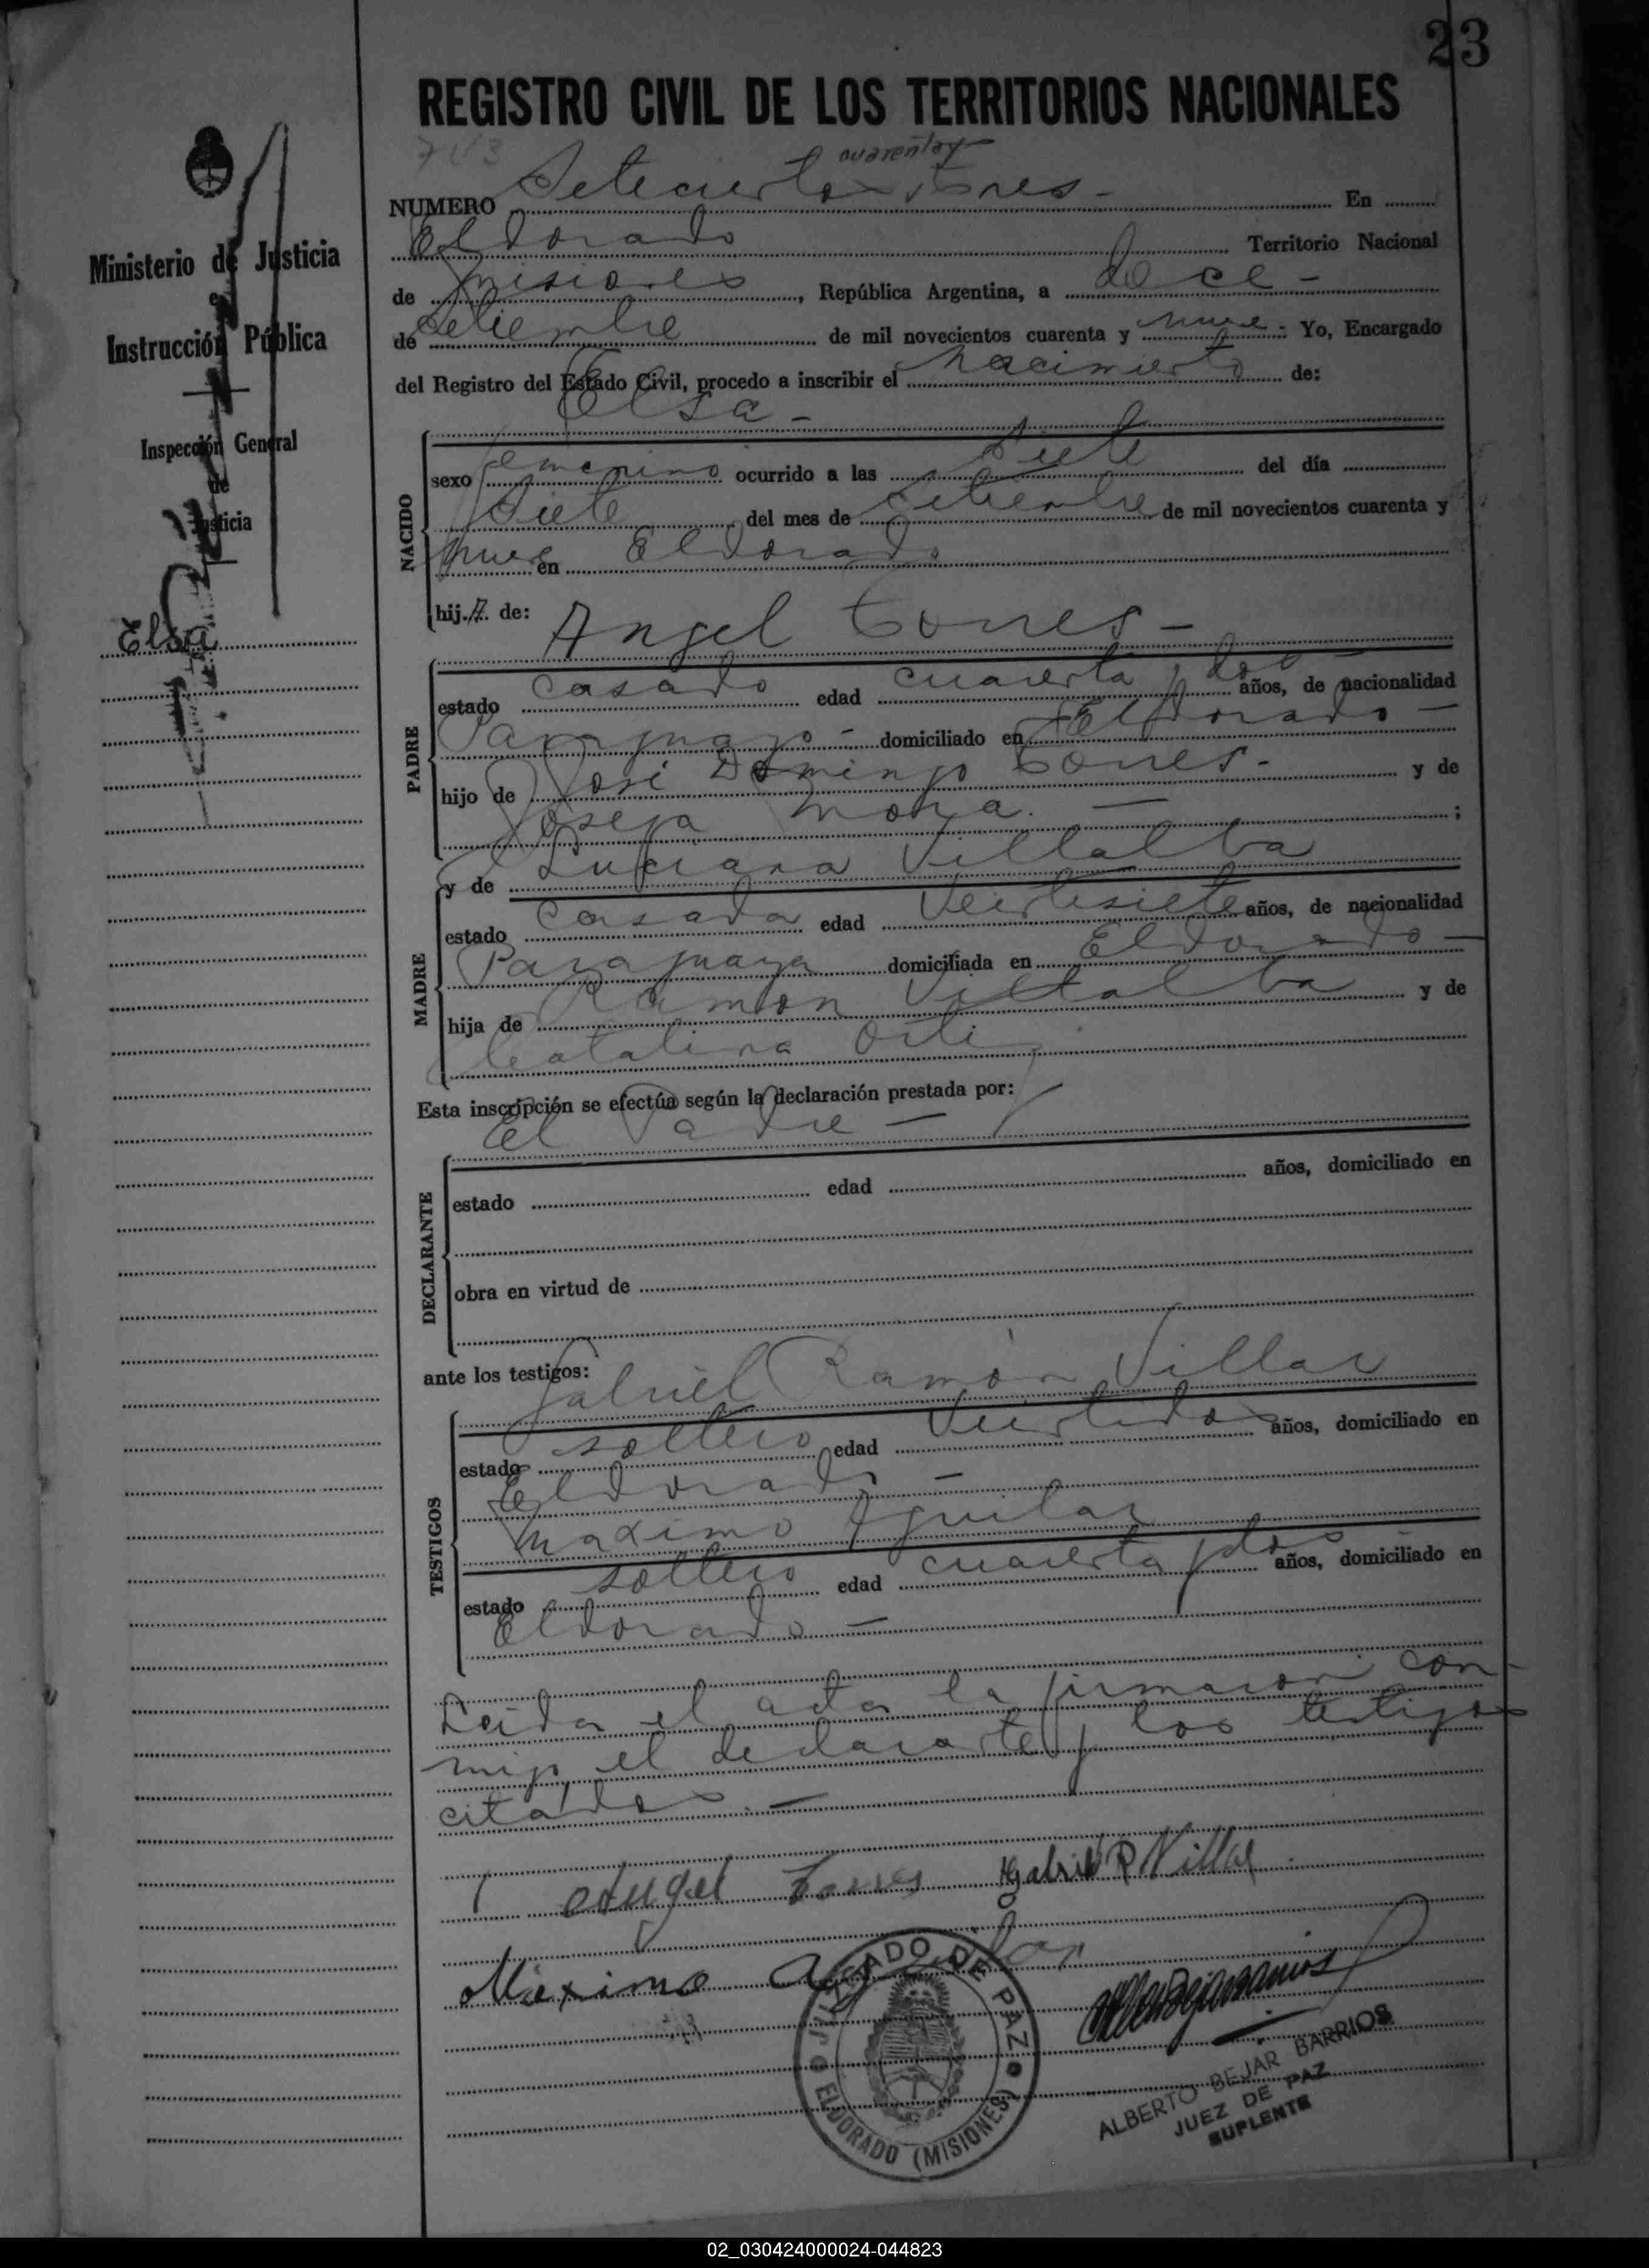 23
REGISTRO CIVIL DE LOS TERRITORIOS NACIONALES
743
cuarenta y
NUMERO Setecientos tres - En
Eldorado Territorio Nacional
de Misiones, República Argentina, a doce -
de Setiembre de mil novecientos cuarenta y nueve. Yo, Encargado
del Registro del Estado Civil, procedo a inscribir el Nacimiento de:
Elsa -
NACIDO
sexo femenino ocurrido a las siete del día
Siete del mes de Setiembre de mil novecientos cuarenta y
nueve en Eldorado
hija de: Angel Torres -
PADRE
estado casado edad cuarenta y dos años, de nacionalidad
Paraguayo - domiciliado en Eldorado -
hijo de José Domingo Torres - y de
Josefa ;
y de Luciana Villalba
MADRE
estado casada edad Veintisiete años, de nacionalidad
Paraguaya domiciliada en Eldorado -
hija de Ramón Villalba y de
Catalina Ortiz
Esta inscripción se efectúa según la declaración prestada por:
El Padre -
DECLARANTE
estado edad años, domiciliado en
obra en virtud de
ante los testigos: Gabriel Ramón Villar
TESTIGOS
estado soltero edad Veintidos años, domiciliado en
Eldorado -
Maximo Aguilar
estado soltero edad cuarenta y dos años, domiciliado en
Eldorado -
Leida el acta la firmaron con-
migo, el declarante y los testigos
citados. -
Angel Torres Gabriel R Villar
Maximo Aguilar
JUZGADO DE PAZ
ELDORADO (MISIONES)
ALBERTO BEJAR BARRIOS
JUEZ DE PAZ
SUPLENTE
Ministerio de Justicia
e
Instrucción Pública
Inspección General
de
Justicia
Elsa
02_030424000024-044823